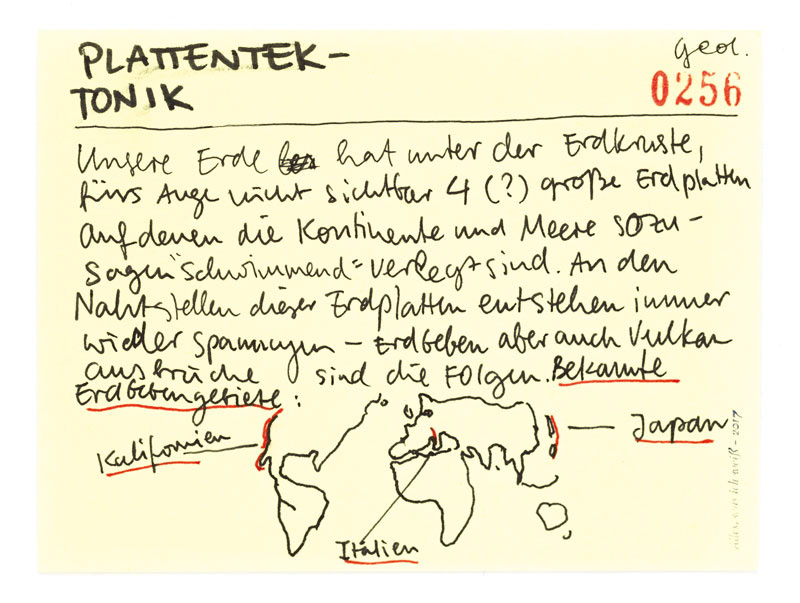 PLATTENTEK-
TONIK
Geol.
0256
Unsere Erde hat unter der Erdkruste,
fürs Auge nicht sichtbar 4 (?) große Erdplatten
auf denen die Kontinente und Meere sozu-
sagen "schwimmend" verlegt sind. An den
Nahtstellen dieser Erdplatten entstehen immer
wieder Spannungen – Erdbeben aber auch Vulkan
ausbrüche sind die Folgen. Bekannte
Erdbebengebiete:
Kalifornien
Japan
Italien
alles, was ich weiß – 2017